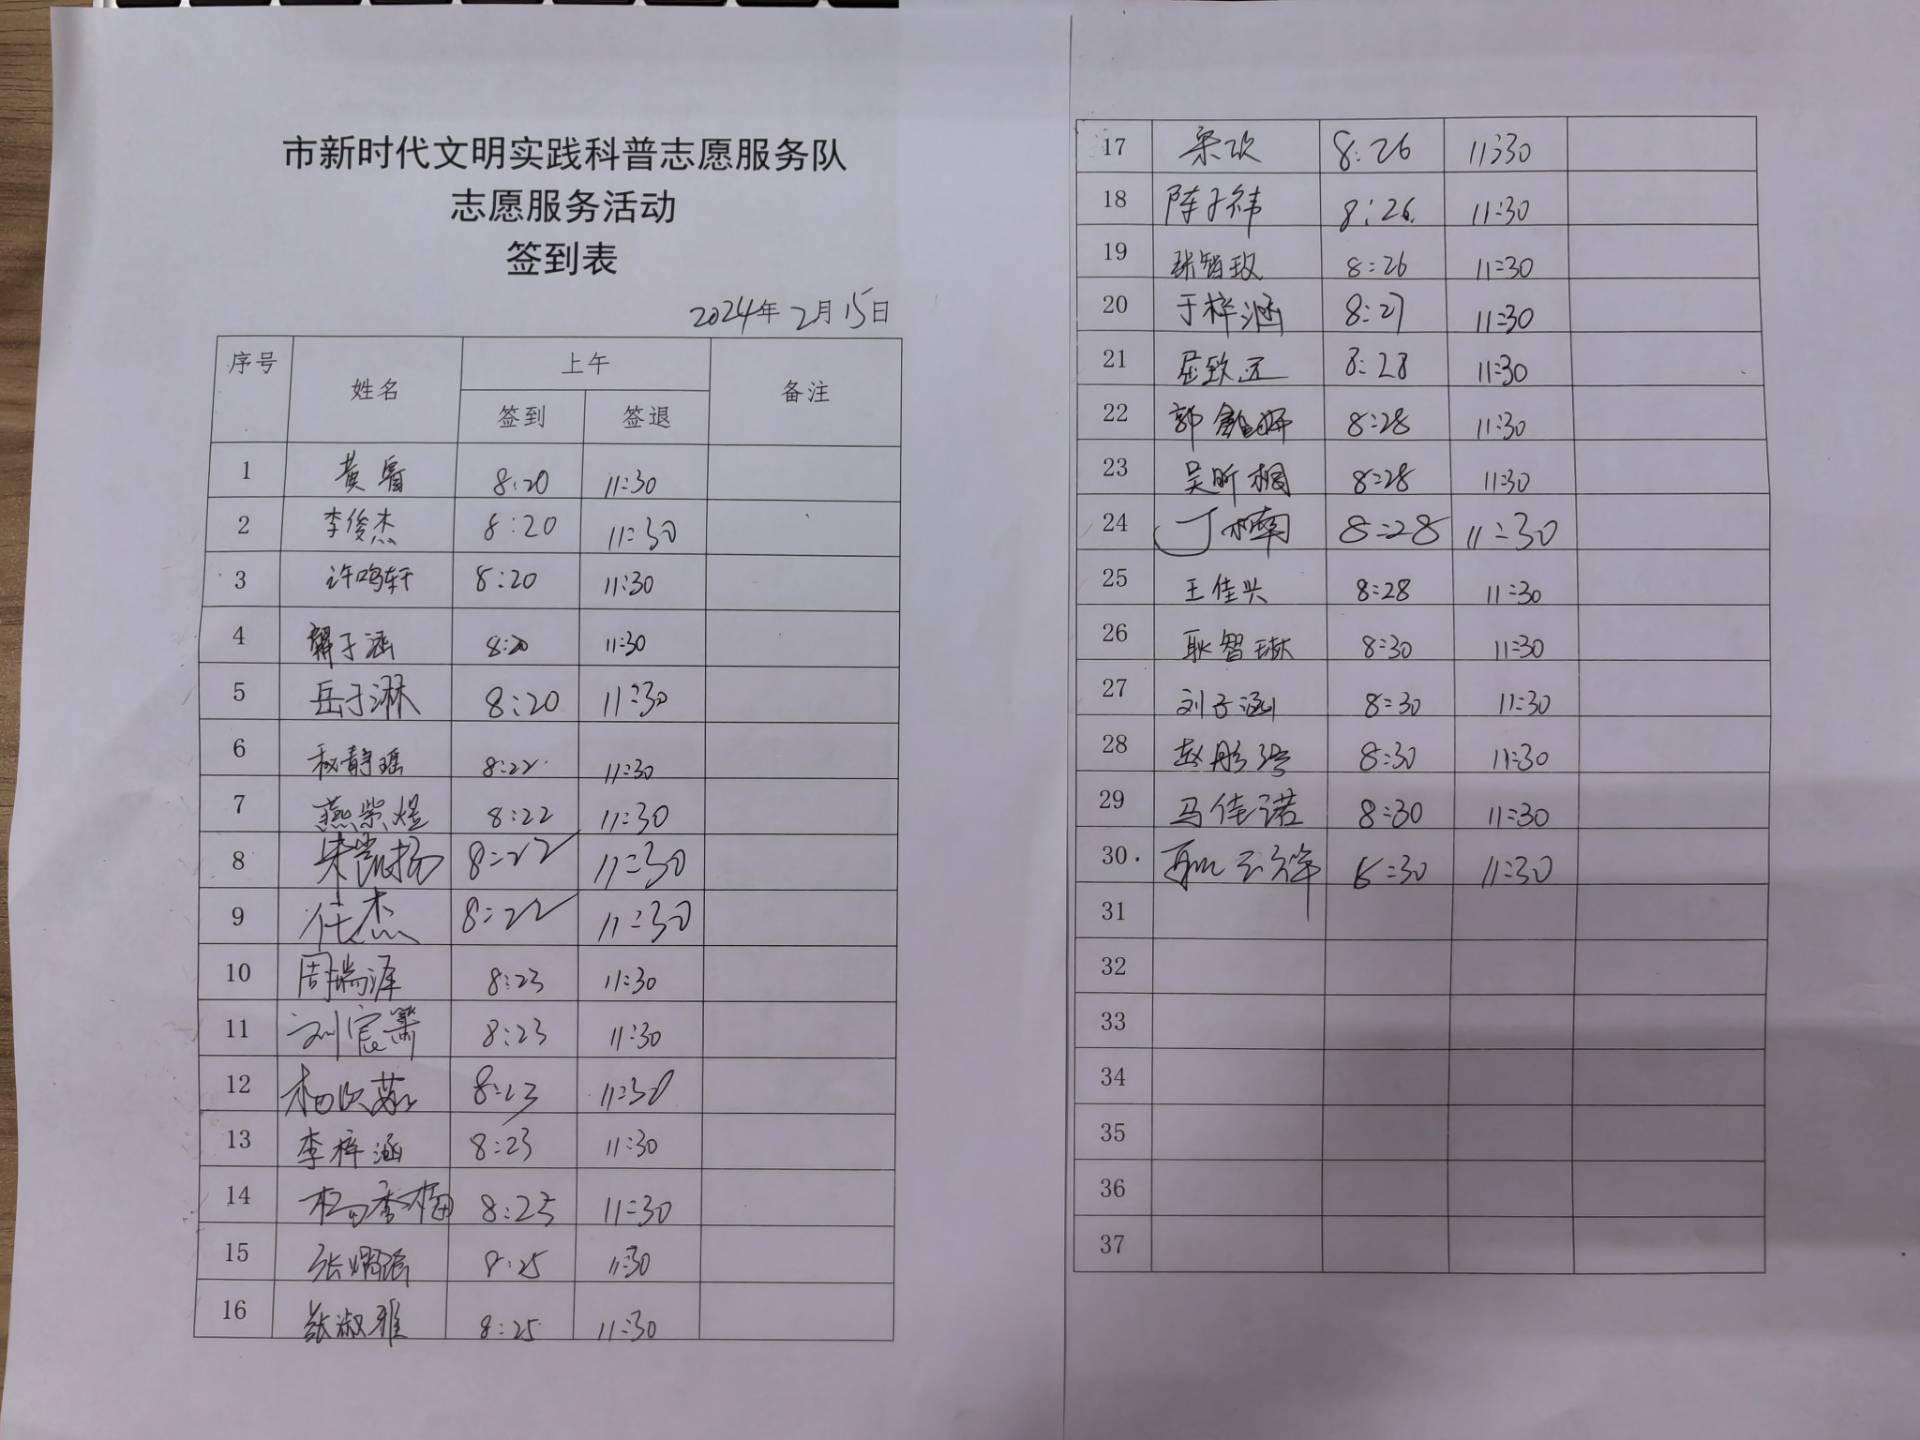 市新时代文明实践科普志愿服务队
志愿服务活动
签到表
2024年2月15日
序号 姓名 上午 备注
签到 签退
1 黄睿 8:20 11:30
2 李俊杰 8:20 11:30
3 许鸣轩 8:20 11:30
4 子涵 8:20 11:30
5 岳于淋 8:20 11:30
6 秘静瑶 8:22 11:30
7 燕紫煜 8:22 11:30
8 朱凯扬 8:22 11:30
9 任杰 8:22 11:30
10 周瑞泽 8:23 11:30
11 刘宸箫 8:23 11:30
12 8:23 11:30
13 李梓涵 8:23 11:30
14 8:25 11:30
15 张 8:25 11:30
16 张淑雅 8:25 11:30
17 梁欢 8:26 11:30
18 陈子祎 8:26 11:30
19 张智玫 8:26 11:30
20 于梓涵 8:27 11:30
21 屈致远 8:28 11:30
22 郭 妍 8:28 11:30
23 吴昕桐 8:28 11:30
24 丁楠 8:28 11:30
25 王佳兴 8:28 11:30
26 耿智琳 8:30 11:30
27 刘子涵 8:30 11:30
28 赵彤 8:30 11:30
29 马佳诺 8:30 11:30
30. 8:30 11:30
31
32
33
34
35
36
37